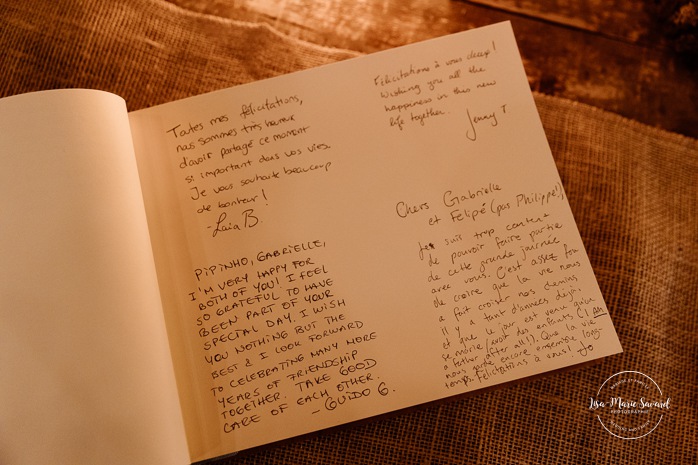 Toutes mes félicitations,
nous sommes très heureux
d'avoir partagé ce moment
si important dans vos vies.
Je vous souhaite beaucoup
de bonheur!
- Laia B.
PIPINHO, GABRIELLE,
I'M VERY HAPPY FOR
BOTH OF YOU! I FEEL
SO GRATEFUL TO HAVE
BEEN PART OF YOUR
SPECIAL DAY. I WISH
YOU NOTHING BUT THE
BEST & I LOOK FORWARD
TO CELEBRATING MANY MORE
YEARS OF FRIENDSHIP
TOGETHER. TAKE GOOD
CARE OF EACH OTHER.
- GUIDO G.
Félicitations à vous deux!
Wishing you all the
happiness in this new
life together.
Jenny T.
Chers Gabrielle
et Felipé (pas Philippe!),
Je suis trop contente
de pouvoir faire partie
de cette grande journée
avec vous. C'est assez fou
de croire que la vie nous
a fait croiser nos chemins
il y a tant d'années déjà.
et que le jour est venu qu'on
se marie/avoir des enfants (I AM
a father after all!). Que la vie
nous garde encore ensemble long-
temps. Félicitations à vous! Jo
Lisa-Marie Savard
PHOTOGRAPHY